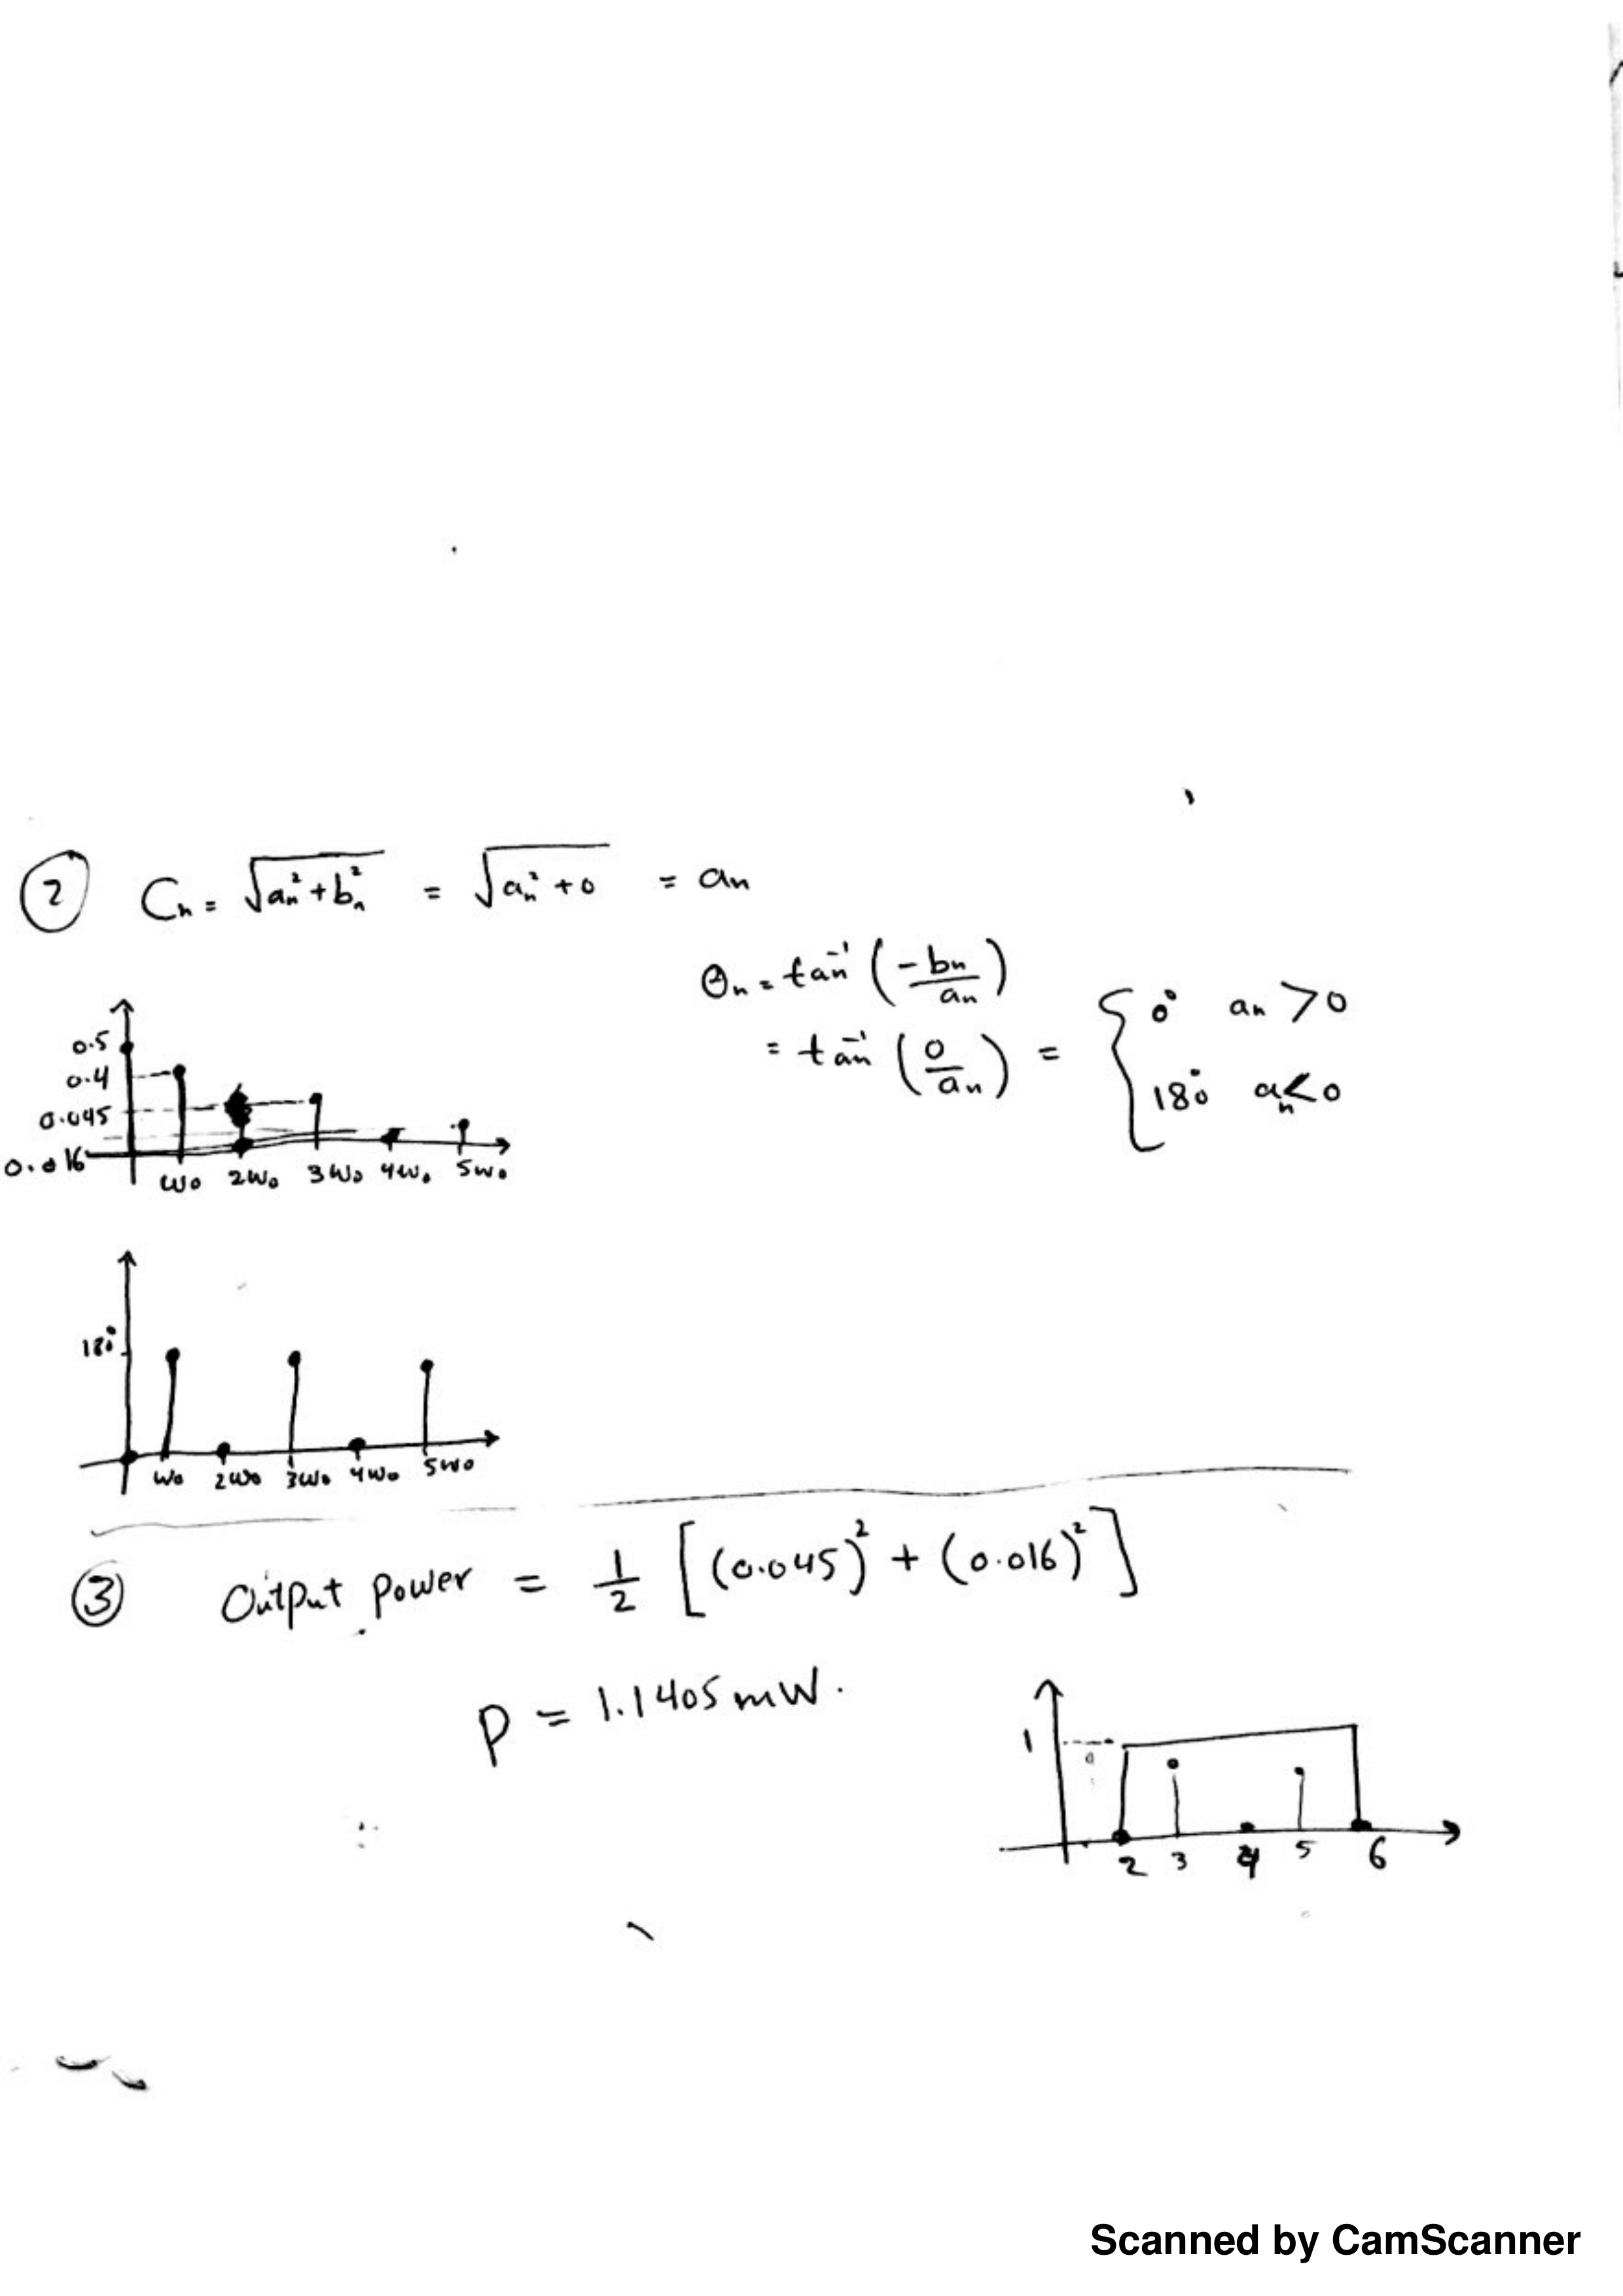 ② Cₙ = √(aₙ² + bₙ²) = √(aₙ² + 0) = aₙ
θₙ = tan⁻¹ (−bₙ / aₙ)
= tan⁻¹ (0 / aₙ) = { 0° aₙ > 0
180° aₙ < 0
0.5
0.4
0.045
0.016
ω₀ 2ω₀ 3ω₀ 4ω₀ 5ω₀
180°
ω₀ 2ω₀ 3ω₀ 4ω₀ 5ω₀
③ Output power = 1/2 [(0.045)² + (0.016)²]
P = 1.1405 mW.
1
2 3 4 5 6
Scanned by CamScanner